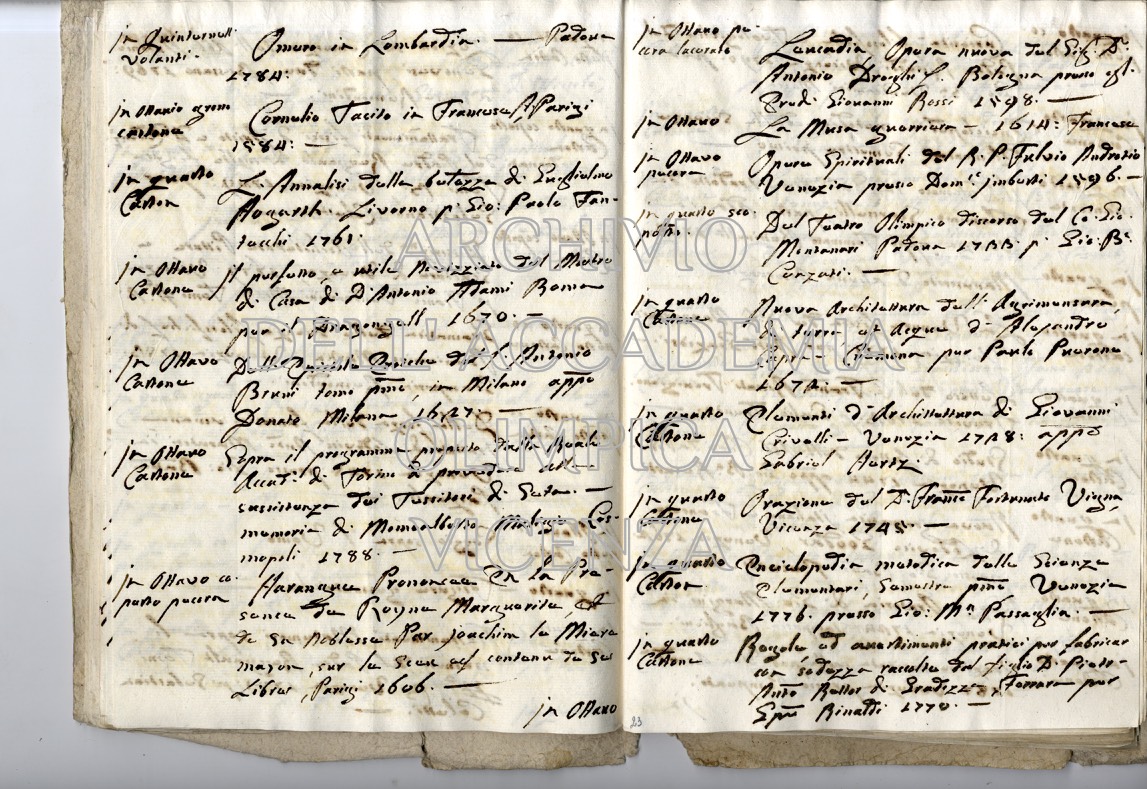 in Quinternelli
Volanti.
Omero in Lombardia. — Padova
1784:
in Ottavio
cartone
Cornelio Tacito in Francese Parigi
1584: —
in quarto
Carton
L'Annalisi della belezza di Guglielmo
Hogarth. Livorno p. Gio: Paolo Fan-
techi 1761.
in Ottavo
Cartone
il perfetto, e utile Novizziato del Mastro
di Casa di D. Antonio Adami Roma
per il Dragonzelli 1670. —
in Ottavo
Cartone
Delle Epistole Eroiche del S. Antonio
Bruni tomo pmo, in Milano appo
Donato 1627. —
in Ottavo
Cartone
Sopra il programma proposto dalla Reale
Accad: di Torino à provedere alla
sussistenza dei Torcitori di Seta. —
memoria di Cos-
mopoli 1788. —
in Ottavo co.
perto pecora
Harangue Prononcee En la Pre-
sence da Royne Marguerite, et
de sa noblesse Par Joachim
sur le contenu de ses
Libres, Parigi 1606. —
in Ottavo
in Ottavo pe-
cora lacerato
Leucadia Opera nuova del Sig. D.
Antonio Droghi L. Bologna presso gl.
Eredi Giovanni Rossi 1598. —
in Ottavo
La Musa guerriera — 1614: Francese
in Ottavo
pecora
Opere Spirituali del R. P. Fulvio Androtio
Venezia presso Dom.c imberti 1596 —
in quarto sco
Del Teatro Olimpico discorso del Co. Gio.
Montanari Padova 1733. p. Gio. B.
Conzati. —
in quarto
Cartone
Nuova Architettura dell' Agrimensura
di terre et Acque di Alesandro
Capra — Cremona per Paolo Puerone
1672. —
in quarto
Cartone
Elementi d'Architettura di Giovanni
Crivelli — Venezia 1728: appo
Gabriel Hertz.
in quarto
Cartone
Orazione del D. Fran.co Fortunato Vigna,
Vicenza 1745. —
in quarto
Carton
Enciclopedia metodica delle Scienze
Elementari, Semestre pmo Venezia
1776. presso Gio: M. Bassaglia. —
in quarto
Cartone
Regole ed avertimenti pratici per fabricar
con sodezza raccolte dal figlio D. Pietr-
Ant.o Barbon di Gradizza, Ferrara per
Rinaldi 1770. —
23
ARCHIVIO
DELL'ACCADEMIA
OLIMPICA
VICENZA